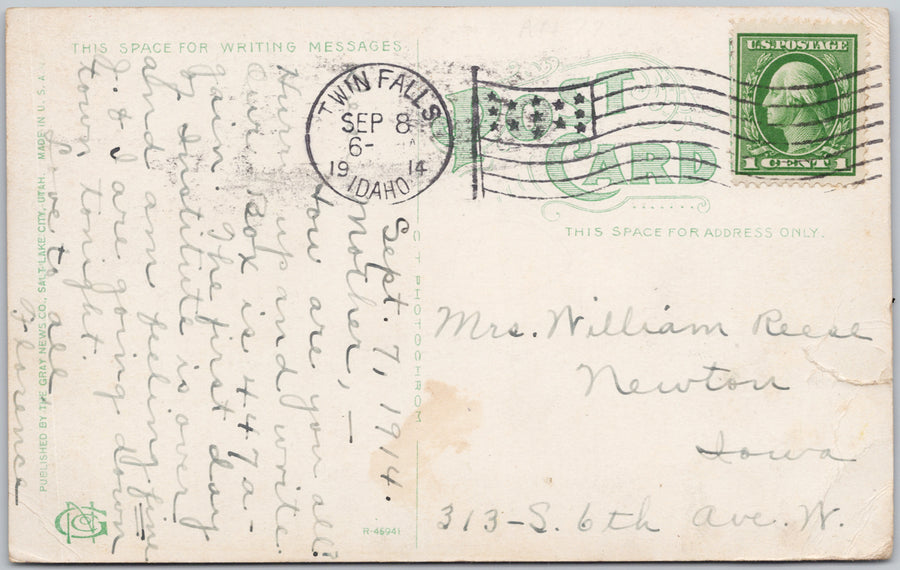 THIS SPACE FOR WRITING MESSAGES
POST
CARD
THIS SPACE FOR ADDRESS ONLY.
U.S. POSTAGE
1 CENT 1
TWIN FALLS
SEP 8
6-
19 14
IDAHO
Sept. 7, 1914.
Mother,—
How are you all?
Hurry up and write.
Our Box is 447 a-
gain. The first day
of Institute is over
and am feeling fine
I. & J. are going down
town tonight.
Love to all
Florence
Mrs. William Reese
Newton
Iowa
313-S. 6th Ave. W.
PUBLISHED BY THE GRAY NEWS CO., SALT LAKE CITY, UTAH. MADE IN U.S.A.
C T PHOTOCHROM
R-46941